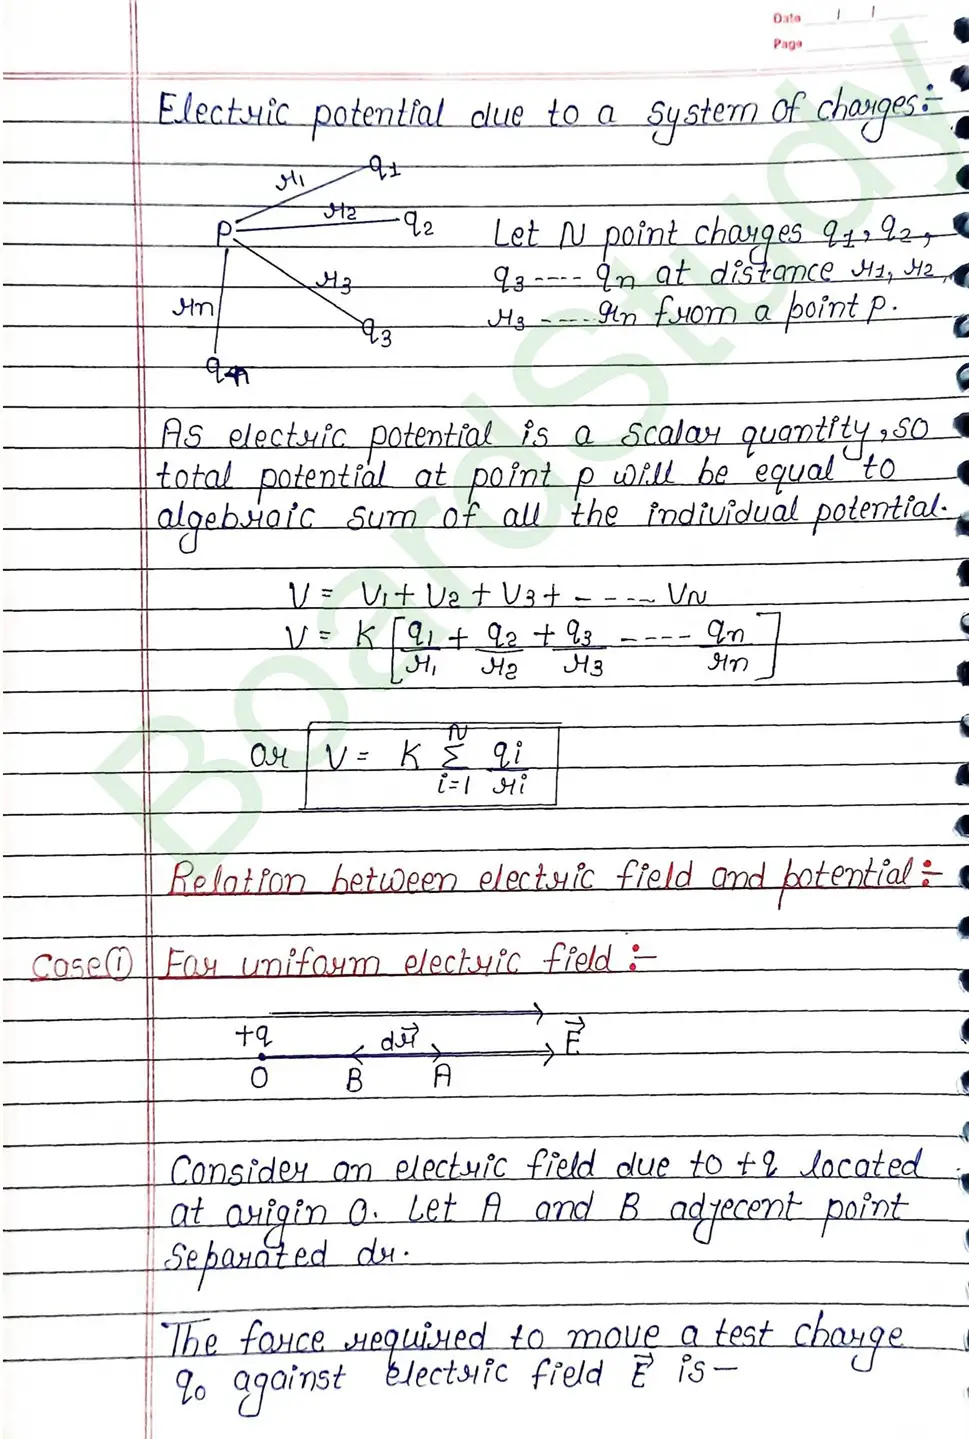 Date
Page
Electric potential due to a system of charges:-
q1
r1
r2
q2
P
r3
rn
q3
qn
Let N point charges q1, q2,
q3 ---- qn at distance r1, r2,
r3 ---- rn from a point P.
As electric potential is a scalar quantity, so
total potential at point P will be equal to
algebraic sum of all the individual potential.
V = V1 + V2 + V3 + ---- VN
V = K [q1/r1 + q2/r2 + q3/r3 ---- qn/rn]
or V = K N Σ i=1 qi/ri
Relation between electric field and potential:-
Case ① For uniform electric field :-
+q dr⃗ E⃗
O B A
Consider an electric field due to +q located
at origin O. Let A and B adjecent point
separated dr.
The force required to move a test charge
q0 against electric field E⃗ is —
BoardStudy